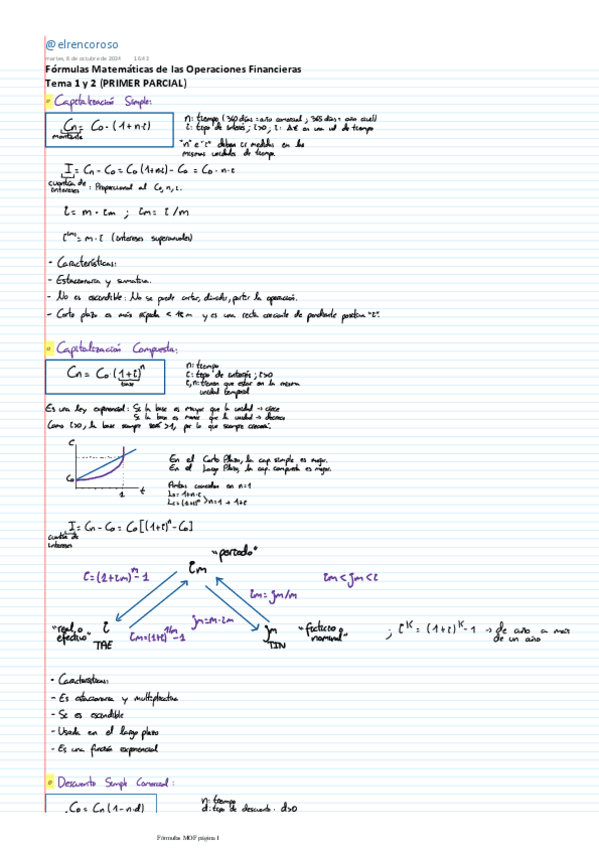 @elrencoroso
martes, 8 de octubre de 2024 10:42
Fórmulas Matemáticas de las Operaciones Financieras
Tema 1 y 2 (PRIMER PARCIAL)
Capitalización Simple:
Cn = Co · (1+n·i)
montante
n: tiempo (360 días = año comercial ; 365 días = año civil)
i: tipo de interés ; i>0 ;
"n" e "i" deben ir medidos en las
mismas unidades de tiempo
I = Cn - Co = Co (1+n·i) - Co = Co · n · i
cuantía de
intereses : Proporcional al Co, n, i.
i = m · im ; im = i/m
= m · i (intereses superanuales)
- Características:
- Estacionaria y sumativa.
- No es escindible: No se puede cortar, dividir, partir la operación.
- Corto plazo es más rápida y es una recta creciente de pendiente positiva "i".
Capitalización Compuesta:
Cn = Co · (1+i)^n
base
n: tiempo
i: tipo de interés ; i>0
i, n: tienen que estar en la misma
unidad temporal
Es una ley exponencial: Si la base es mayor que la unidad → crece
Si la base es menor que la unidad → decrece
Como i>0, la base siempre >1, por lo que siempre crecerá.
C
Co
1
t
En el Corto Plazo, la cap. simple es mejor.
En el Largo Plazo, la cap. compuesta es mejor.
Ambas coinciden en n=1
1+n·i
(1+i)^n > n=1 → 1+i
I = Cn - Co = Co [(1+i)^n - Co]
cuantía de
intereses
"periodo"
im
i = (1+im)^m - 1
im = jm/m
im < jm < i
"real o
efectivo"
i
TAE
im = (1+i)^1/m - 1
jm = m · im
jm
TIN
"ficticio o
nominal"
; i^K = (1+i)^K - 1 → de año a más
de un año
- Características:
- Es estacionaria y multiplicativa
- Si es escindible
- Usada en el largo plazo
- Es una función exponencial
Descuento Simple Comercial:
Co = Cn (1-n·d)
n: tiempo
d: tipo de descuento. d>0
Fórmulas MOF página 1